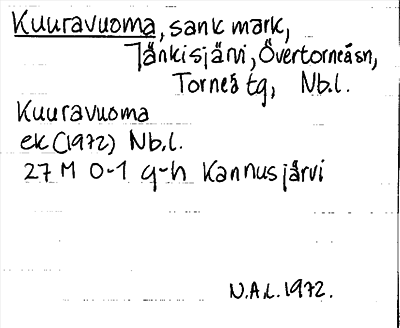 Kuuravuoma, sank mark,
Jänkisjärvi, Övertorneåsn,
Torneå tg, Nb.l.
Kuuravuoma
ek (1972) Nb.l.
27 M 0-1 g-h Kannusjärvi
N.A.L. 1972.